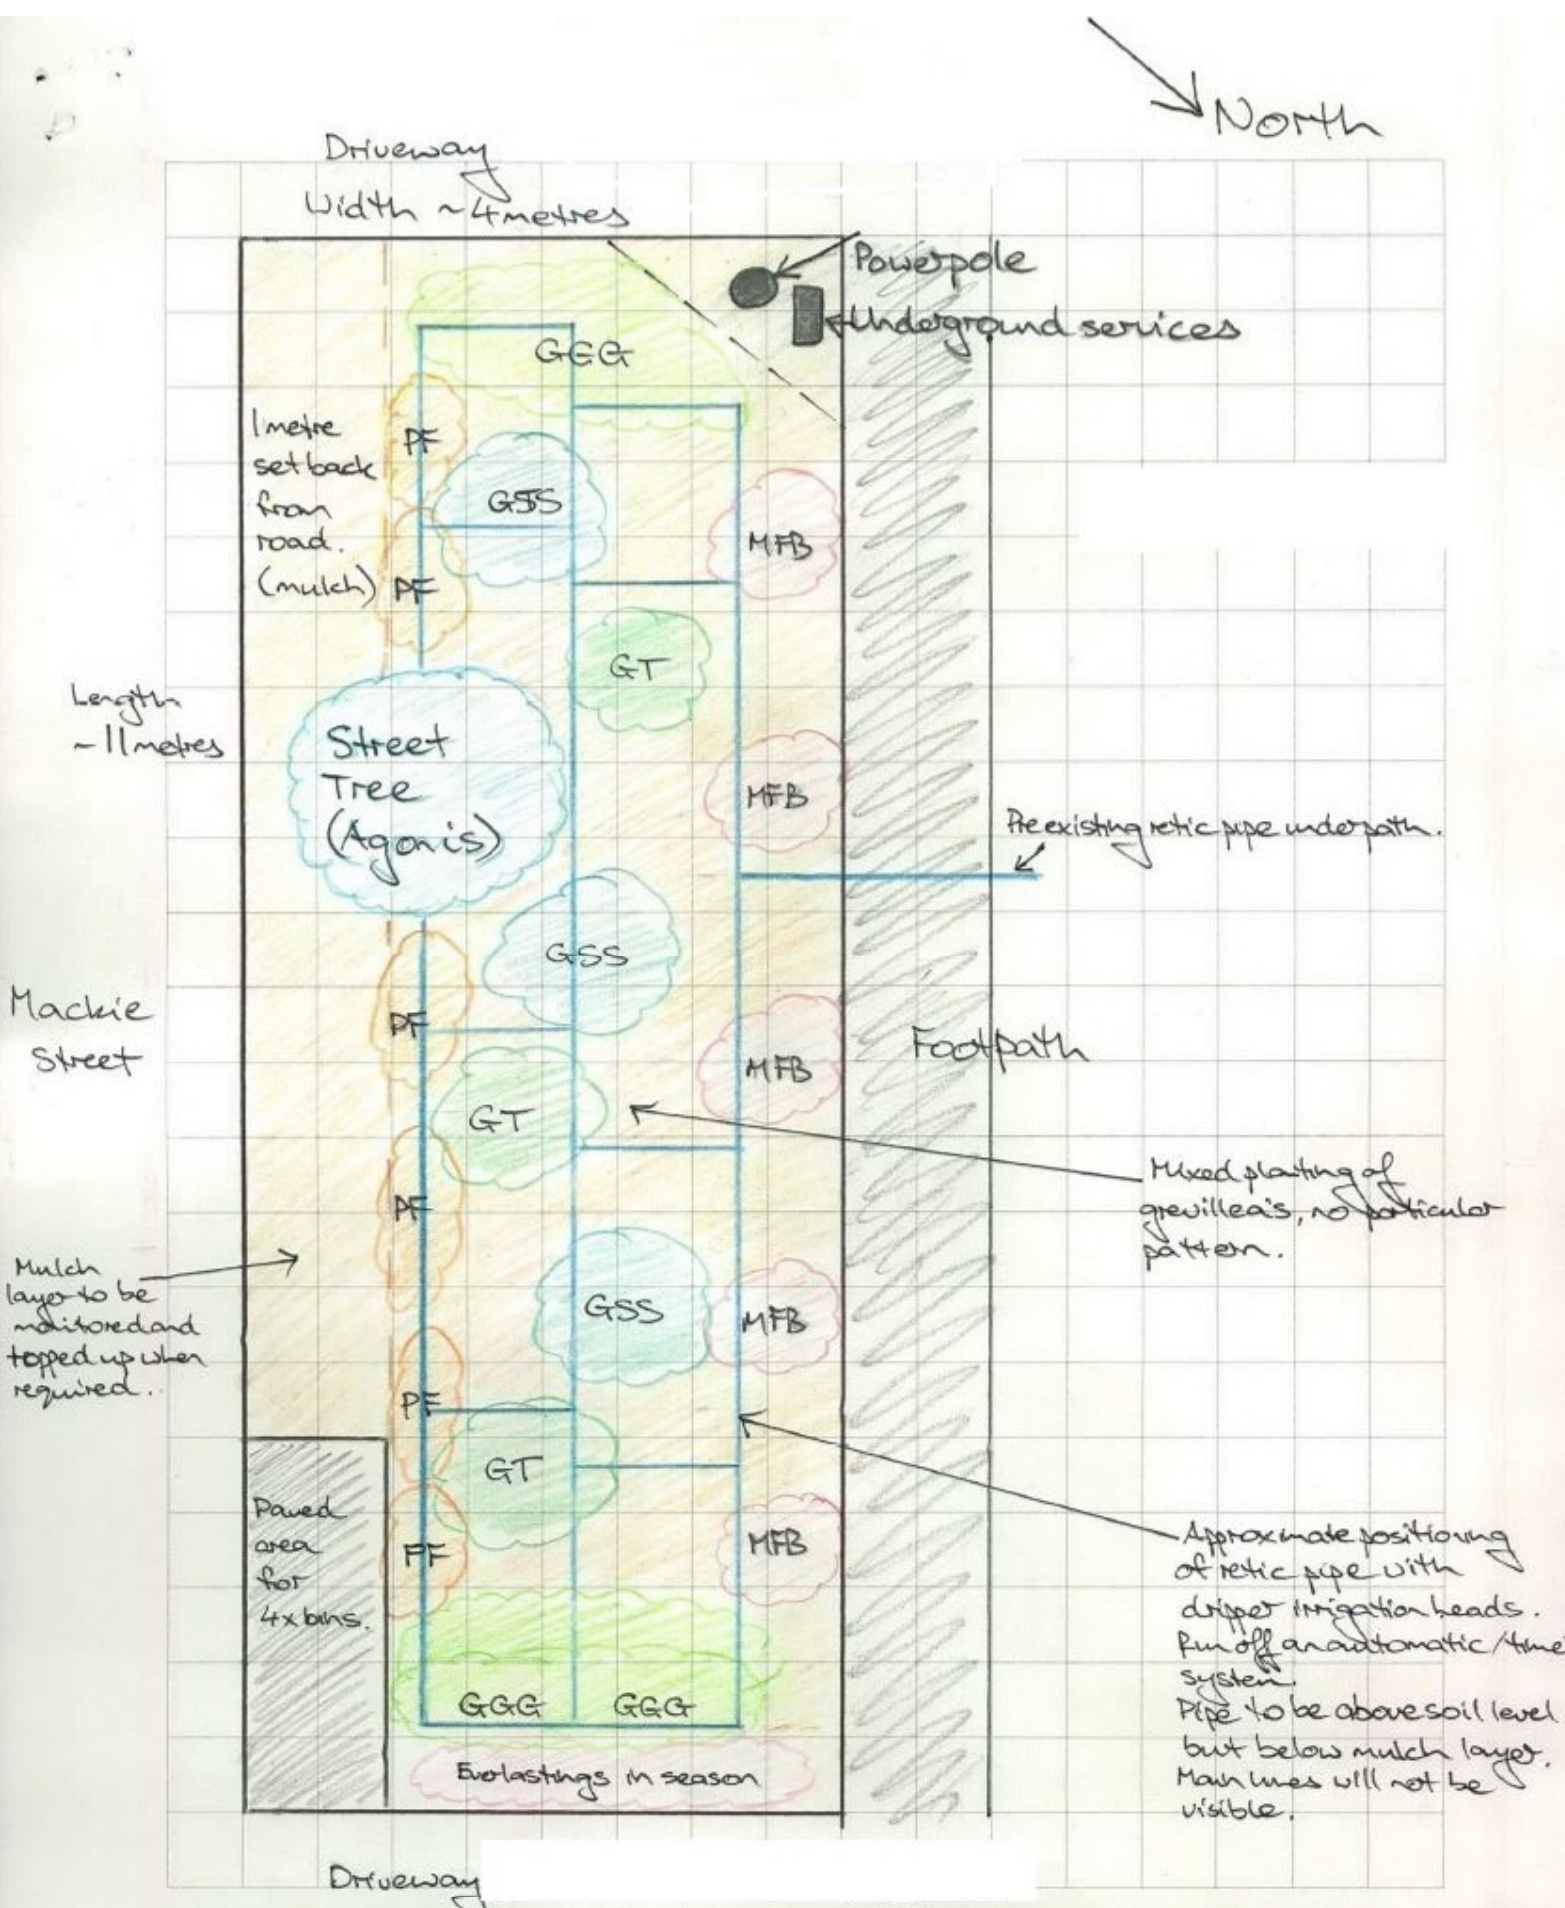 North
Driveway
Width ~4metres
Powerpole
Underground services
GGG
1 metre
set back
from
road.
(mulch)
PF
GSS
MFB
PF
GT
Length
~11metres
Street
Tree
(Agonis)
MFB
Pre existing retic pipe under path.
GSS
Mackie
Street
PF
Footpath
MFB
GT
Mixed planting of
grevillea's, no particular
pattern.
PF
Mulch
layer to be
monitored and
topped up when
required.
GSS
MFB
PF
GT
Paved
area
for
4x bins.
PF
MFB
Approximate positioning
of retic pipe with
dripper irrigation heads.
Run off an automatic/time
system.
Pipe to be above soil level
but below mulch layer.
Main lines will not be
visible.
GGG GGG
Everlastings in season
Driveway